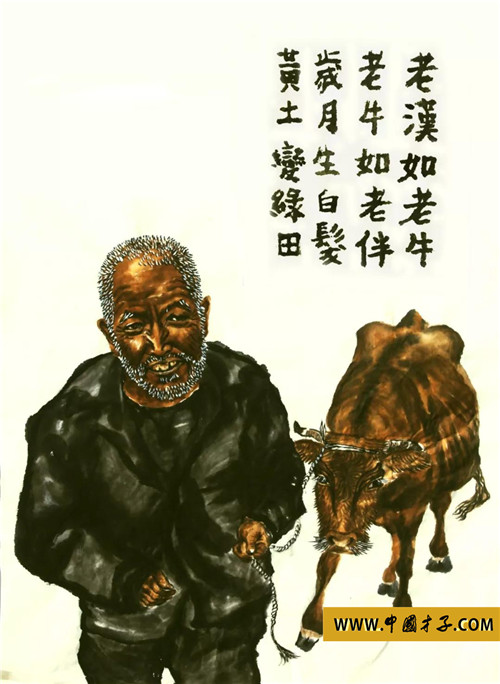 老漢如老牛
老牛如老伴
歲月生白髮
黃土變緑田
www.中國才子.COM